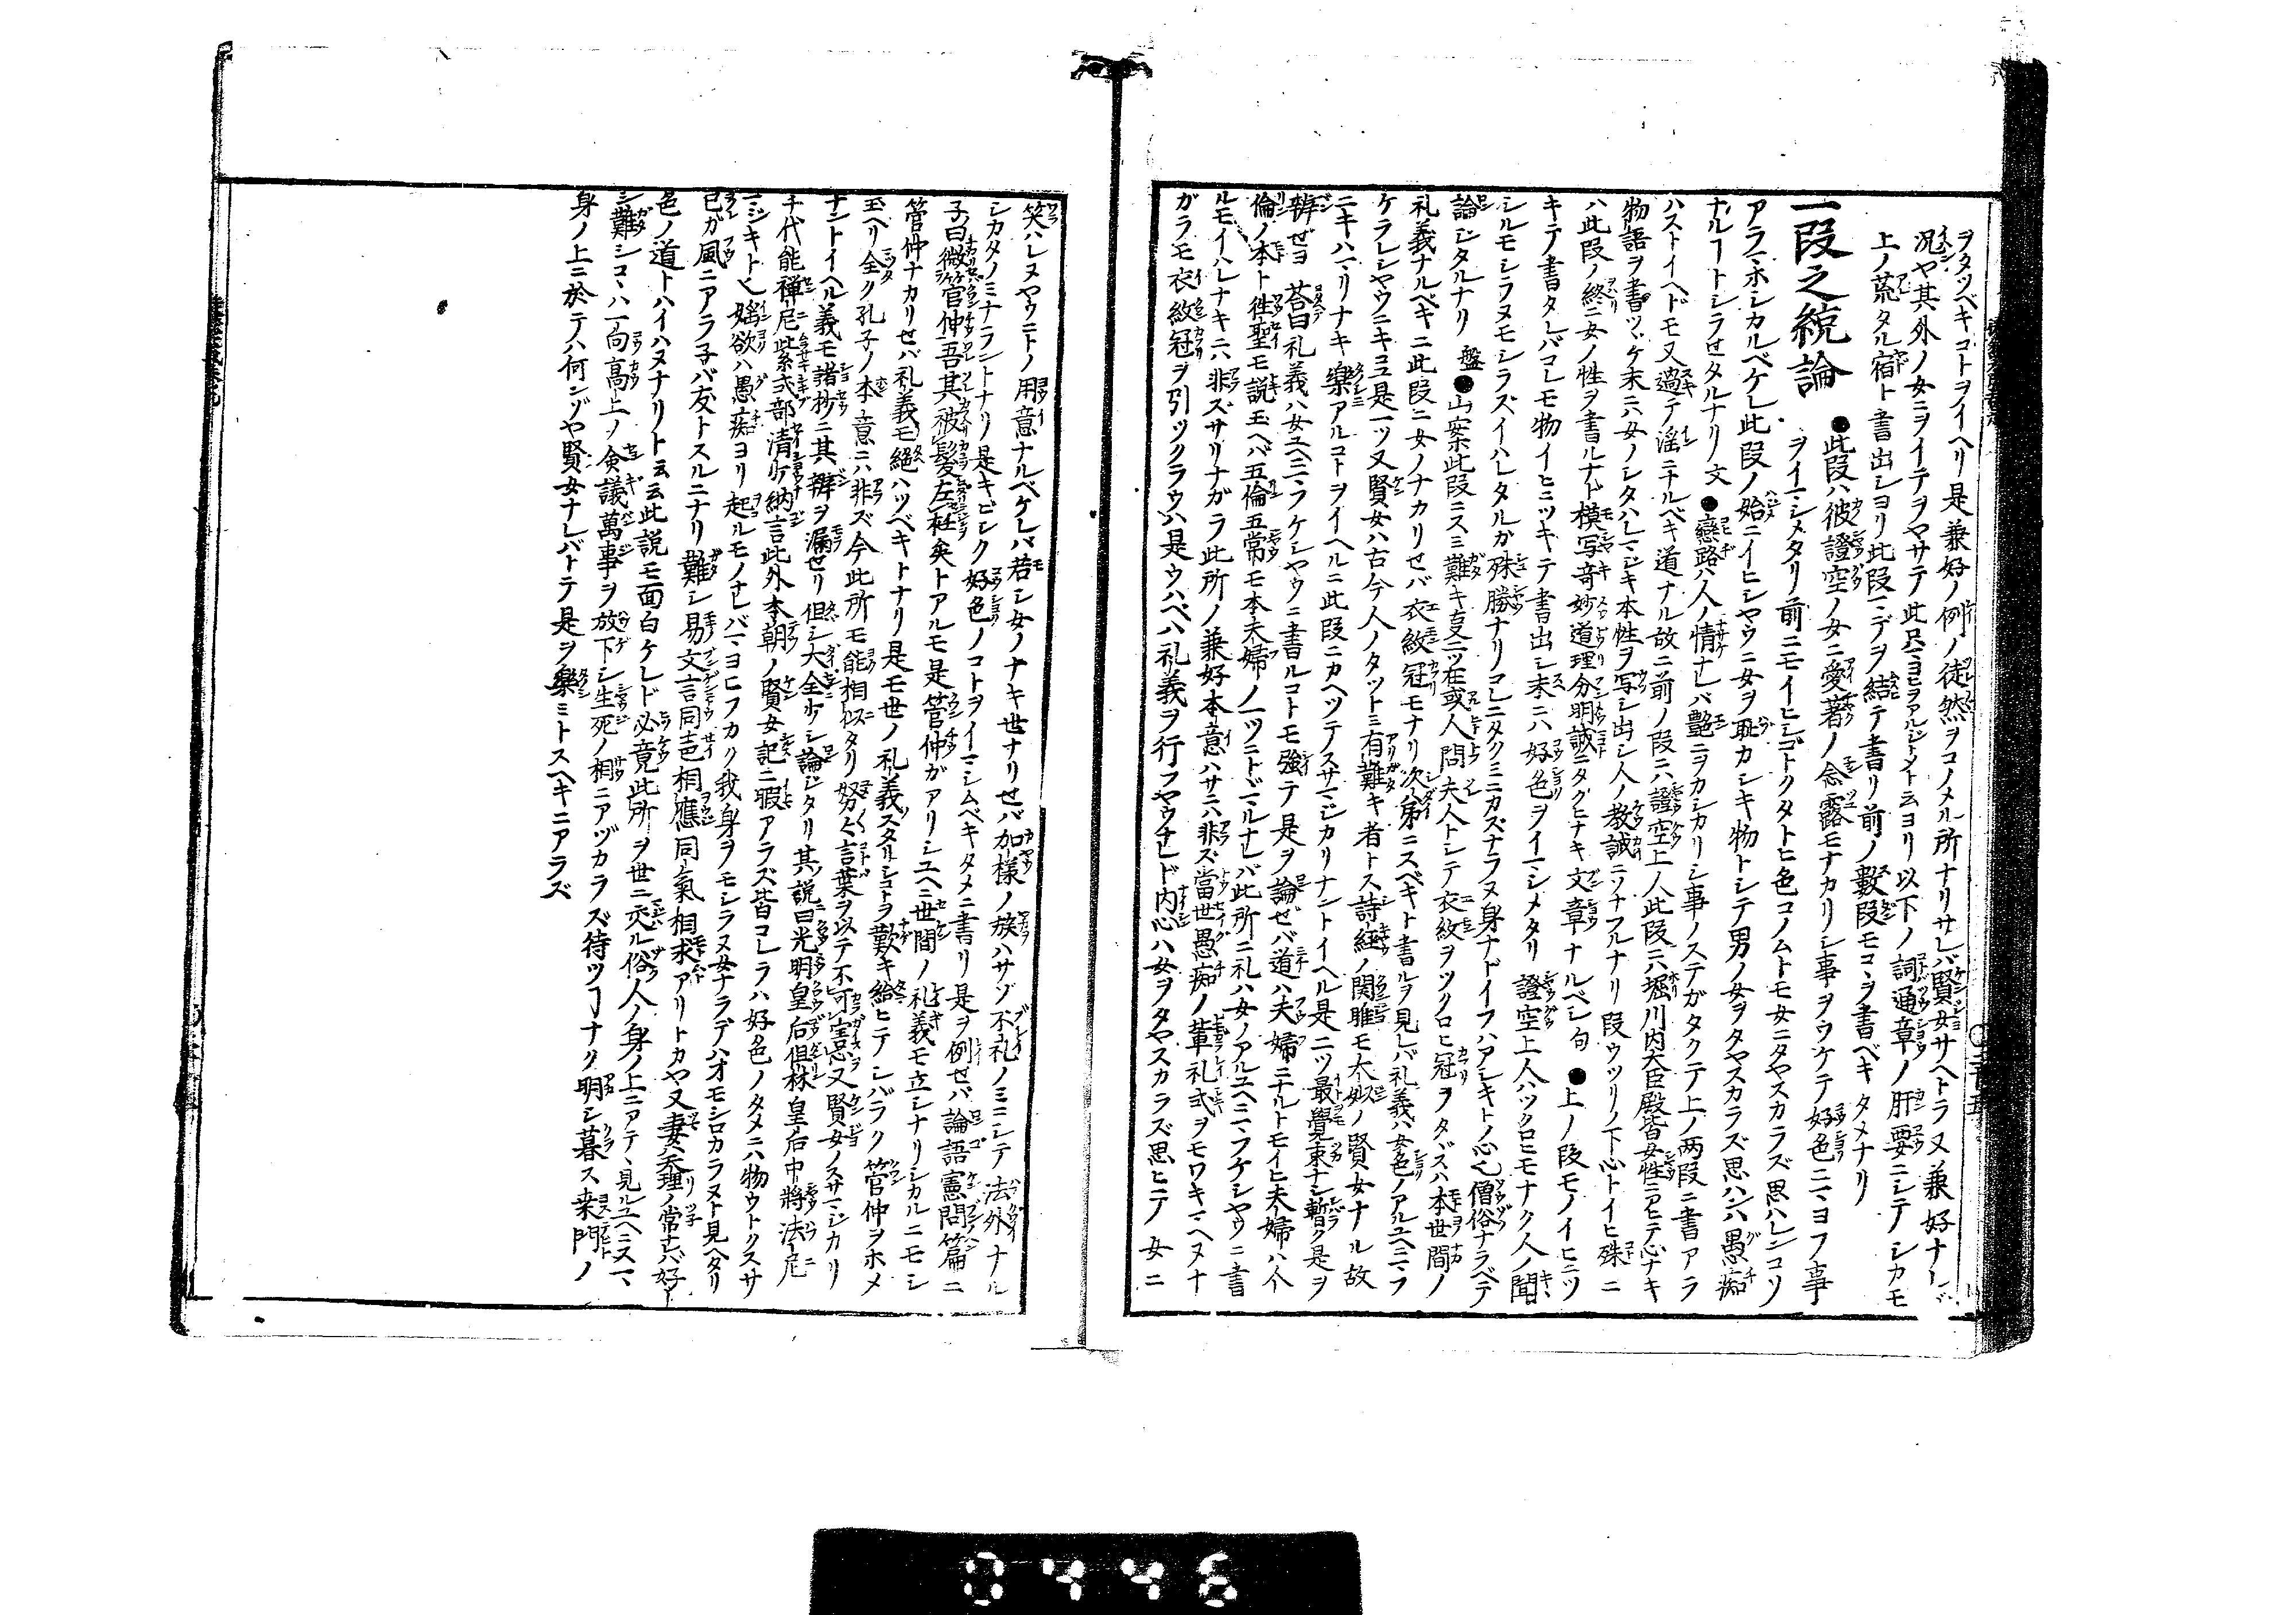 ヲタツベキコトヲイヘリ是兼好ノ例ノ徒然ヲコノメル所ナリサレバ賢女サヘトラヌ兼好ナレバ
況ヤ其外ノ女ニヲイテヲヤサテ此尺ニヨヒヲアルジトメト云ヨリ以下ノ詞通章ノ肝要ニシテシカモ
上ノ荒タル宿ト書出シヨリ此段マデヲ結テ書リ前ノ數段モコヽヲ書ベキタメナリ
一段之統論
●此段ハ彼證空ノ女ニ愛著ノ念露モナカリシ事ヲウケテ好色ニマヨフ事
ヲイマシメタリ前ニモイヒシゴトクタトヒ色コノムトモ女ニタヤスカラズ思ハレンコソ
アラマホシカルベケレ此段ノ始ニイヒシヤウニ女ヲ恥カシキ物トシテ男ノ女ヲタヤスカラズ思ハンハ愚痴
ナルヿトシラセタルナリ文●戀路ハ人ノ情ナレバ艶ニヲカシカリシ事ノステガタクテ上ノ两段ニ書アラ
ハストイヘドモ又過テ淫ニナルベキ道ナル故ニ前ノ段ニハ證空上人此段ニハ堀川内大臣殿皆女性ニアヒテ心ナキ
物語ヲ書ツヾケ末ニハ女ノシタハレマジキ本性ヲ写シ出シ人ノ教誡ニソナフルナリ段ウツリノ下心トイヒ殊ニ
ハ此段ノ終ニ女ノ性ヲ書ルナド模写奇妙道理分明誠ニタグヒナキ文章ナルベシ句●上ノ段モノイヒニツ
キテノ書タレバコレモ物イヒニツキテ書出シ末ニハ好色ヲイマシメタリ證空上人ハツクロヒモナク人ノ聞
シルモシラヌモシラズイハレタルガ殊勝ナリコレニタクミニカズナラヌ身ナドイフハアシキトノ心也僧俗ナラベテ
論ジタルナリ盤●山案此段ニスミ難キ㕝二ツ在或人問夫人トシテ衣紋ヲツクロヒ冠ヲタヾスハ本世間ノ
礼義ナルベキニ此段ニ女ノナカリセバ衣紋冠モナリ次第ニスベキト書ルヲ見レバ礼義ハ女色ノアルユヘニマフ
ケラレシヤウニキコユ是一ツ又賢女ハ古今人ノタットミ有難キ者トス詩経ノ関雎モ太姒ノ賢女ナル故
ニキハマリナキ樂アルコトヲイヘルニ此段ニカヘツテスサマジカリナントイヘル是二ツ最覺束ナシ暫ク是ヲ
辨ゼヨ答曰礼義ハ女ユヘニマフケシヤウニ書ルコトモ強テ是ヲ論ゼバ道ハ夫婦ニナルトモイヒ夫婦ハ人
倫ノ本ト徃聖モ説玉ヘバ五倫五常モ本夫婦ノ一ツニトヾマルナレバ此所ニ礼ハ女ノアルユヘニマフケシヤウニ書
ルモイハレナキニハ非ズサリナガラ此所ノ兼好本意ハサニハ非ズ當世愚痴ノ輩礼式ヲモワキマヘヌナ
ガラモ衣紋冠ヲ引ックラウハ是ウハベハ礼義ヲ行フヤウナレド内心ハ女ヲタヤスカラズ思ヒテノ女ニ
笑ハレヌヤウニトノ用意ナルベケレバ若シ女ノナキ世ナリセバ加様ノ族ハサゾ不礼ノミニシテ法外ナル
シカタノミナラントナリ是キビシク好色ノコトヲイマシムベキタメニ書リ是ヲ例セバ論語憲問篇ニ
子曰微管仲吾其被髪左衽矣トアルモ是管仲ガアリシユヘニ世間ノ礼義モ立シナリシカルニモシ
管仲ナカリセバ礼義モ絕ハツベキトナリ是モ世ノ礼義スタリシコトヲ歎キ給ヒテシバラク管仲ヲホメ
玉ヘリ全ク孔子ノ本意ニハ非ズ今此所モ能相似タリ努々言葉ヲ以テ不可害意又賢女ノスサマジカリ
ナントイヘル義モ諸抄ニ其辨ヲ漏セリ但シ大全ホヾ論ジタリ其説曰光明皇后但林皇后中將法尼
千代能禪尼紫式部清少納言此外本朝ノ賢女記ニ暇アラズ皆コレラハ好色ノタメニハ物ウトクスサ
マジキト也婬欲ハ愚痴ヨリ起ルモノナレバマヨヒフカク我身ヲモシラヌ女ナラデハオモシロカラヌト見ヘタリ
己ガ風ニアラ子バ友トスルニナリ難シ易文言同聲相應同氣相求アリトカヤ又妻ハ天理ノ常ナレバ好
色ノ道トハイハヌナリト云云此説モ面白ケレド必竟此所ヲ世ニ交ル俗人ノ身ノ上ニアテヽ見ルユヘニ又一
シ難シコヽハ一向高上ノ僉議萬事ヲ放下シ生死ノ相ニアヅカラズ待ツヿナク明シ暮ス桒門ノ
身ノ上ニ於テハ何シゾヤ賢女ナレバトテ是ヲ樂ミトスヘキニアラズ
0446